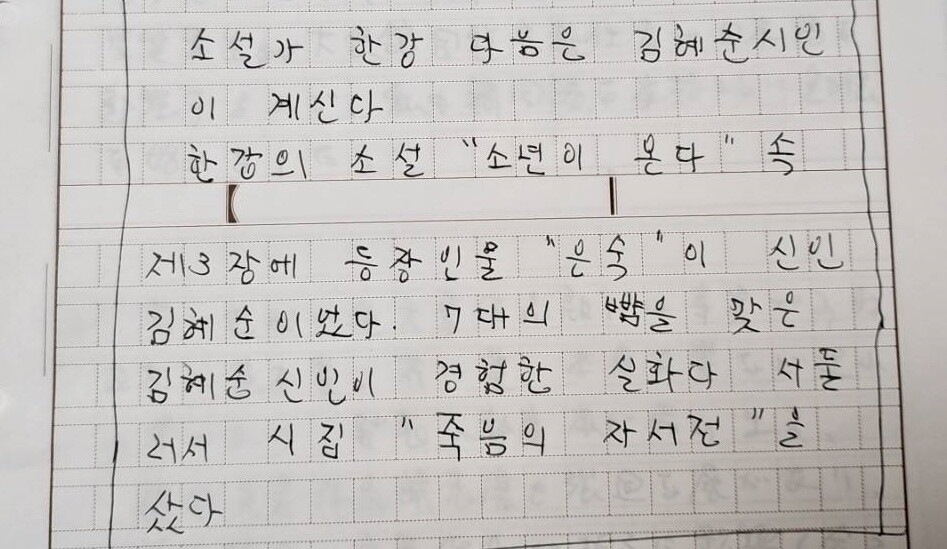 소설가 한강 다음은 김혜순시인
이 계신다
한강의 소설 "소년이 온다" 속
제3장에 등장인물 "은숙"이 신인
김혜순이었다. 7대의 뺨을 맞은
김혜순 신인이 경험한 실화다 서둘
러서 시집 "죽음의 자서전"을
샀다